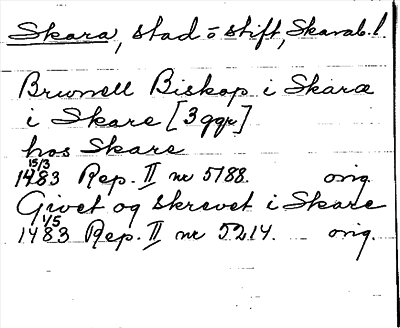 Skara, stad o stift, Skarab. l.
Brunell Biskop i Skaræ
i Skare [3 ggr]
hos Skare
15/3
1483 Rep. II nr 5188. orig.
Givet og skrevet i Skare
1/5
1483 Rep. II nr 5214. orig.